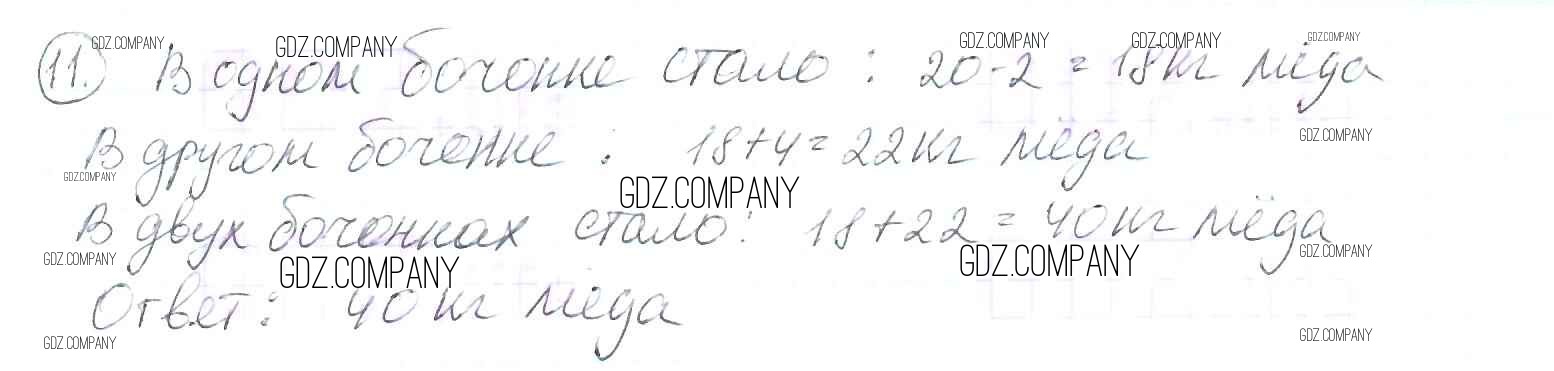 11. В одном бочонке стало: 20-2=18кг мёда
В другом бочонке: 18+4=22кг мёда
В двух бочонках стало: 18+22=40кг мёда
Ответ: 40кг мёда
GDZ.COMPANY GDZ.COMPANY GDZ.COMPANY GDZ.COMPANY GDZ.COMPANY
GDZ.COMPANY
GDZ.COMPANY GDZ.COMPANY
GDZ.COMPANY GDZ.COMPANY GDZ.COMPANY GDZ.COMPANY
GDZ.COMPANY GDZ.COMPANY